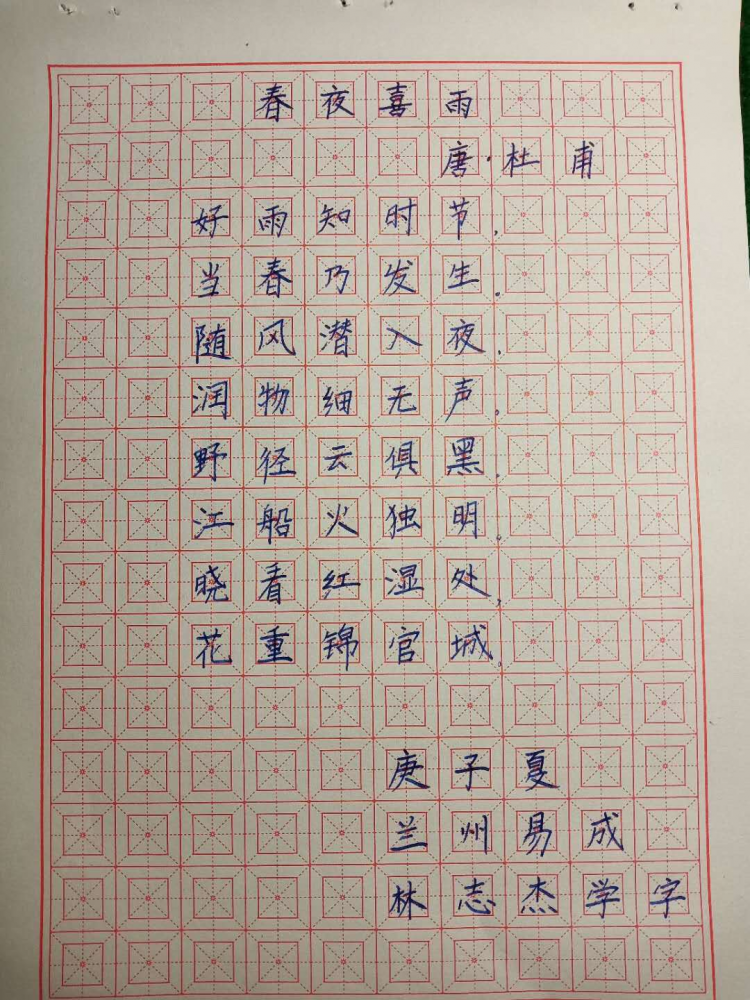 春夜喜雨
唐·杜甫
好雨知时节,
当春乃发生.
随风潜入夜,
润物细无声。
野径云俱黑,
江船火独明。
晓看红湿处,
花重锦官城。
庚子夏
兰州易成
林志杰学字